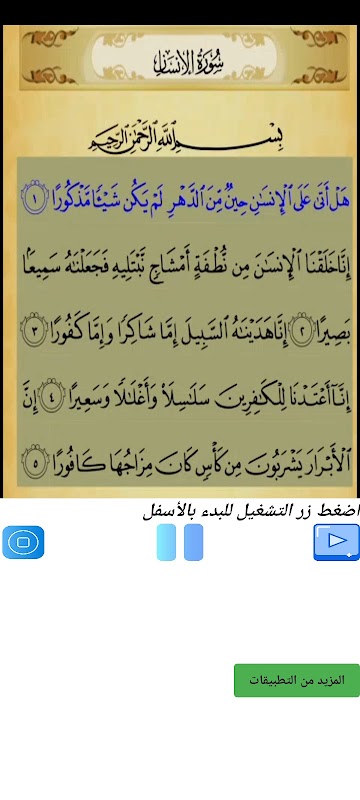 سُورَةُ الإِنسَانِ
بِسْمِ اللَّهِ الرَّحْمَٰنِ الرَّحِيمِ
هَلْ أَتَىٰ عَلَى ٱلْإِنسَٰنِ حِينٌ مِّنَ ٱلدَّهْرِ لَمْ يَكُن شَيْـًٔا مَّذْكُورًا ١
إِنَّا خَلَقْنَا ٱلْإِنسَٰنَ مِن نُّطْفَةٍ أَمْشَاجٍ نَّبْتَلِيهِ فَجَعَلْنَٰهُ سَمِيعًۢا
بَصِيرًا ٢ إِنَّا هَدَيْنَٰهُ ٱلسَّبِيلَ إِمَّا شَاكِرًا وَإِمَّا كَفُورًا ٣
إِنَّآ أَعْتَدْنَا لِلْكَٰفِرِينَ سَلَٰسِلَا۟ وَأَغْلَٰلًا وَسَعِيرًا ٤ إِنَّ
ٱلْأَبْرَارَ يَشْرَبُونَ مِن كَأْسٍ كَانَ مِزَاجُهَا كَافُورًا ٥
اضغط زر التشغيل للبدء بالأسفل
المزيد من التطبيقات